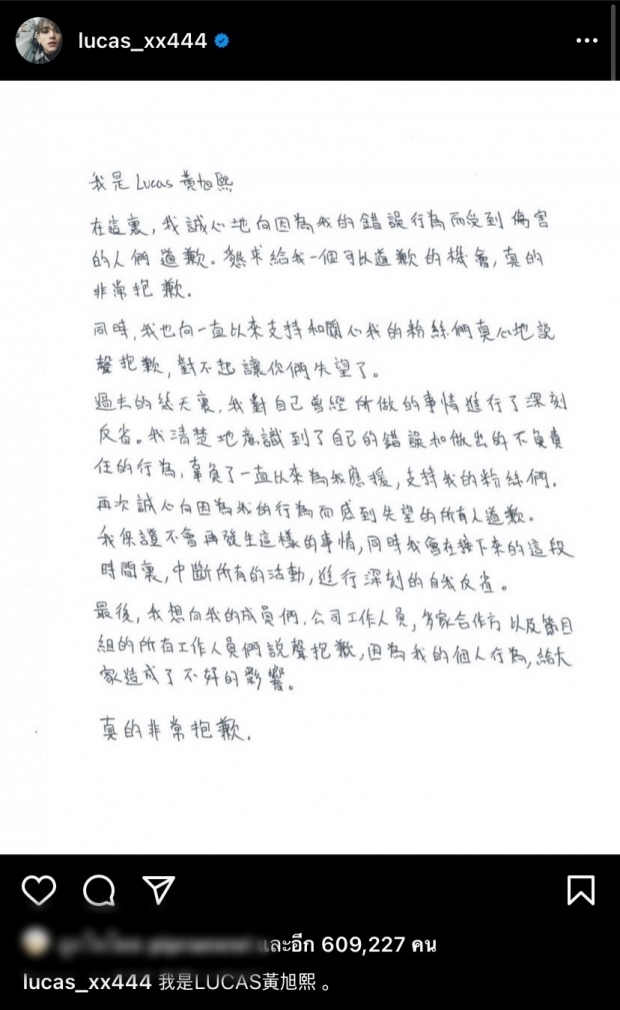 lucas_xx444
我是 Lucas 黃旭熙
在這裏，我誠心地向因為我的錯誤行為而受到傷害
的人們道歉。懇求給我一個可以道歉的機會，真的
非常抱歉．
同時，我也向一直以來支持和關心我的粉絲們真心地說
聲抱歉，對不起讓你們失望了。
過去的幾天裏，我對自己曾經所做的事情進行了深刻
反省。我清楚地意識到了自己的錯誤和做出的不負責
任的行為，辜負了一直以來為我應援，支持我的粉絲們．
再次誠心向因為我的行為而感到失望的所有人道歉。
我保證不會再發生這樣的事情，同時我會在接下來的這段
時間裏，中斷所有的活動，進行深刻的自我反省。
最後，我想向我的成員們，公司工作人員，多家合作方以及節目
組的所有工作人員們說聲抱歉，因為我的個人行為，給大
家造成了不好的影響。
真的非常抱歉．
และอีก 609,227 คน
lucas_xx444 我是LUCAS黃旭熙 。